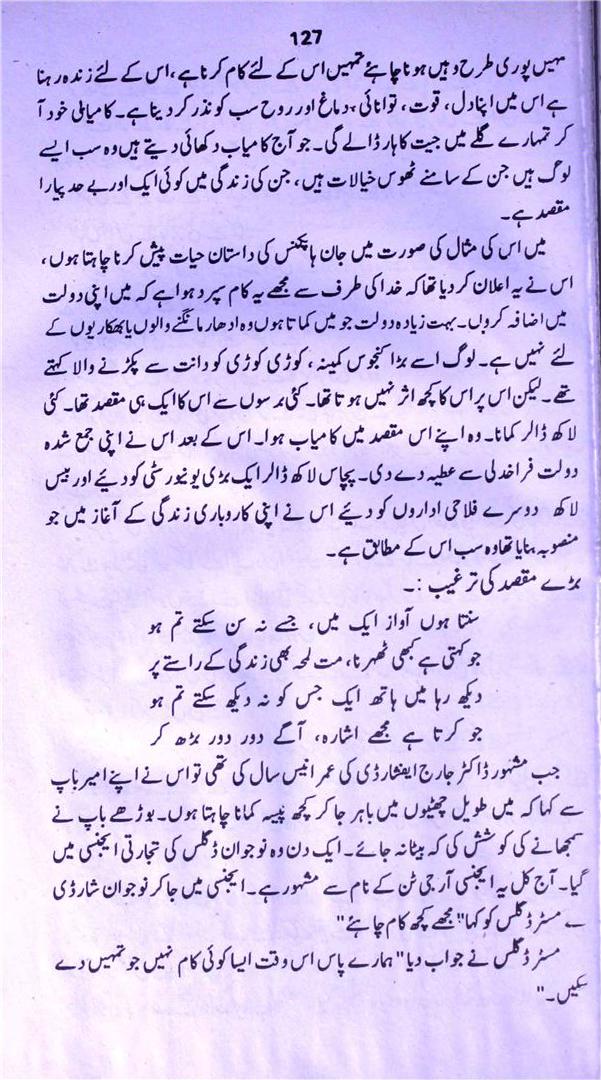 127
ہمیں پوری طرح وہیں ہونا چاہئے تمہیں اس کے لئے کام کرنا ہے، اس کے لئے زندہ رہنا
ہے اس میں اپنا دل، قوت، توانائی، دماغ اور روح سب کو نذر کر دینا ہے۔ کامیابی خود آ
کر تمہارے گلے میں جیت کا ہار ڈالے گی۔ جو آج کامیاب دکھائی دیتے ہیں وہ سب ایسے
لوگ ہیں جن کے سامنے ٹھوس خیالات ہیں، جن کی زندگی میں کوئی ایک اور بے حد پیارا
مقصد ہے۔
میں اس کی مثال کی صورت میں جان ہاپکنس کی داستان حیات پیش کرنا چاہتا ہوں،
اس نے یہ اعلان کر دیا تھا کہ خدا کی طرف سے مجھے یہ کام سپرد ہوا ہے کہ میں اپنی دولت
میں اضافہ کروں۔ بہت زیادہ دولت جو میں کماتا ہوں وہ ادھار مانگنے والوں یا بھکاریوں کے
لئے نہیں ہے۔ لوگ اسے بڑا کنجوس کمینہ، کوڑی کوڑی کو دانت سے پکڑنے والا کہتے
تھے۔ لیکن اس پر اس کا کچھ اثر نہیں ہوتا تھا۔ کئی برسوں سے اس کا ایک ہی مقصد تھا۔ کئی
لاکھ ڈالر کمانا۔ وہ اپنے اس مقصد میں کامیاب ہوا۔ اس کے بعد اس نے اپنی جمع شدہ
دولت فراخدلی سے عطیہ دے دی۔ پچاس لاکھ ڈالر ایک بڑی یونیورسٹی کو دیئے اور بیس
لاکھ دوسرے فلاحی اداروں کو دیئے اس نے اپنی کاروباری زندگی کے آغاز میں جو
منصوبہ بنایا تھا وہ سب اس کے مطابق ہے۔
بڑے مقصد کی ترغیب :۔
سنتا ہوں آواز ایک میں، جسے نہ سن سکتے تم ہو
جو کہتی ہے کبھی ٹھہرنا، مت لمحہ بھی زندگی کے راستے پر
دیکھ رہا میں ہاتھ ایک جس کو نہ دیکھ سکتے تم ہو
جو کرتا ہے مجھے اشارہ، آگے دور دور بڑھ کر
جب مشہور ڈاکٹر جارج ایفشارڈی کی عمر انیس سال کی تھی تو اس نے اپنے امیر باپ
سے کہا کہ میں طویل چھٹیوں میں باہر جا کر کچھ پیسہ کمانا چاہتا ہوں۔ بوڑھے باپ نے
سمجھانے کی کوشش کی کہ بیٹا نہ جائے۔ ایک دن وہ نوجوان ڈگلس کی تجارتی ایجنسی میں
گیا۔ آج کل یہ ایجنسی آر جی ٹن کے نام سے مشہور ہے۔ ایجنسی میں جا کر نوجوان شارڈی
نے مسٹر ڈگلس کو کہا "مجھے کچھ کام چاہئے"
مسٹر ڈگلس نے جواب دیا "ہمارے پاس اس وقت ایسا کوئی کام نہیں جو تمہیں دے
سکیں۔"